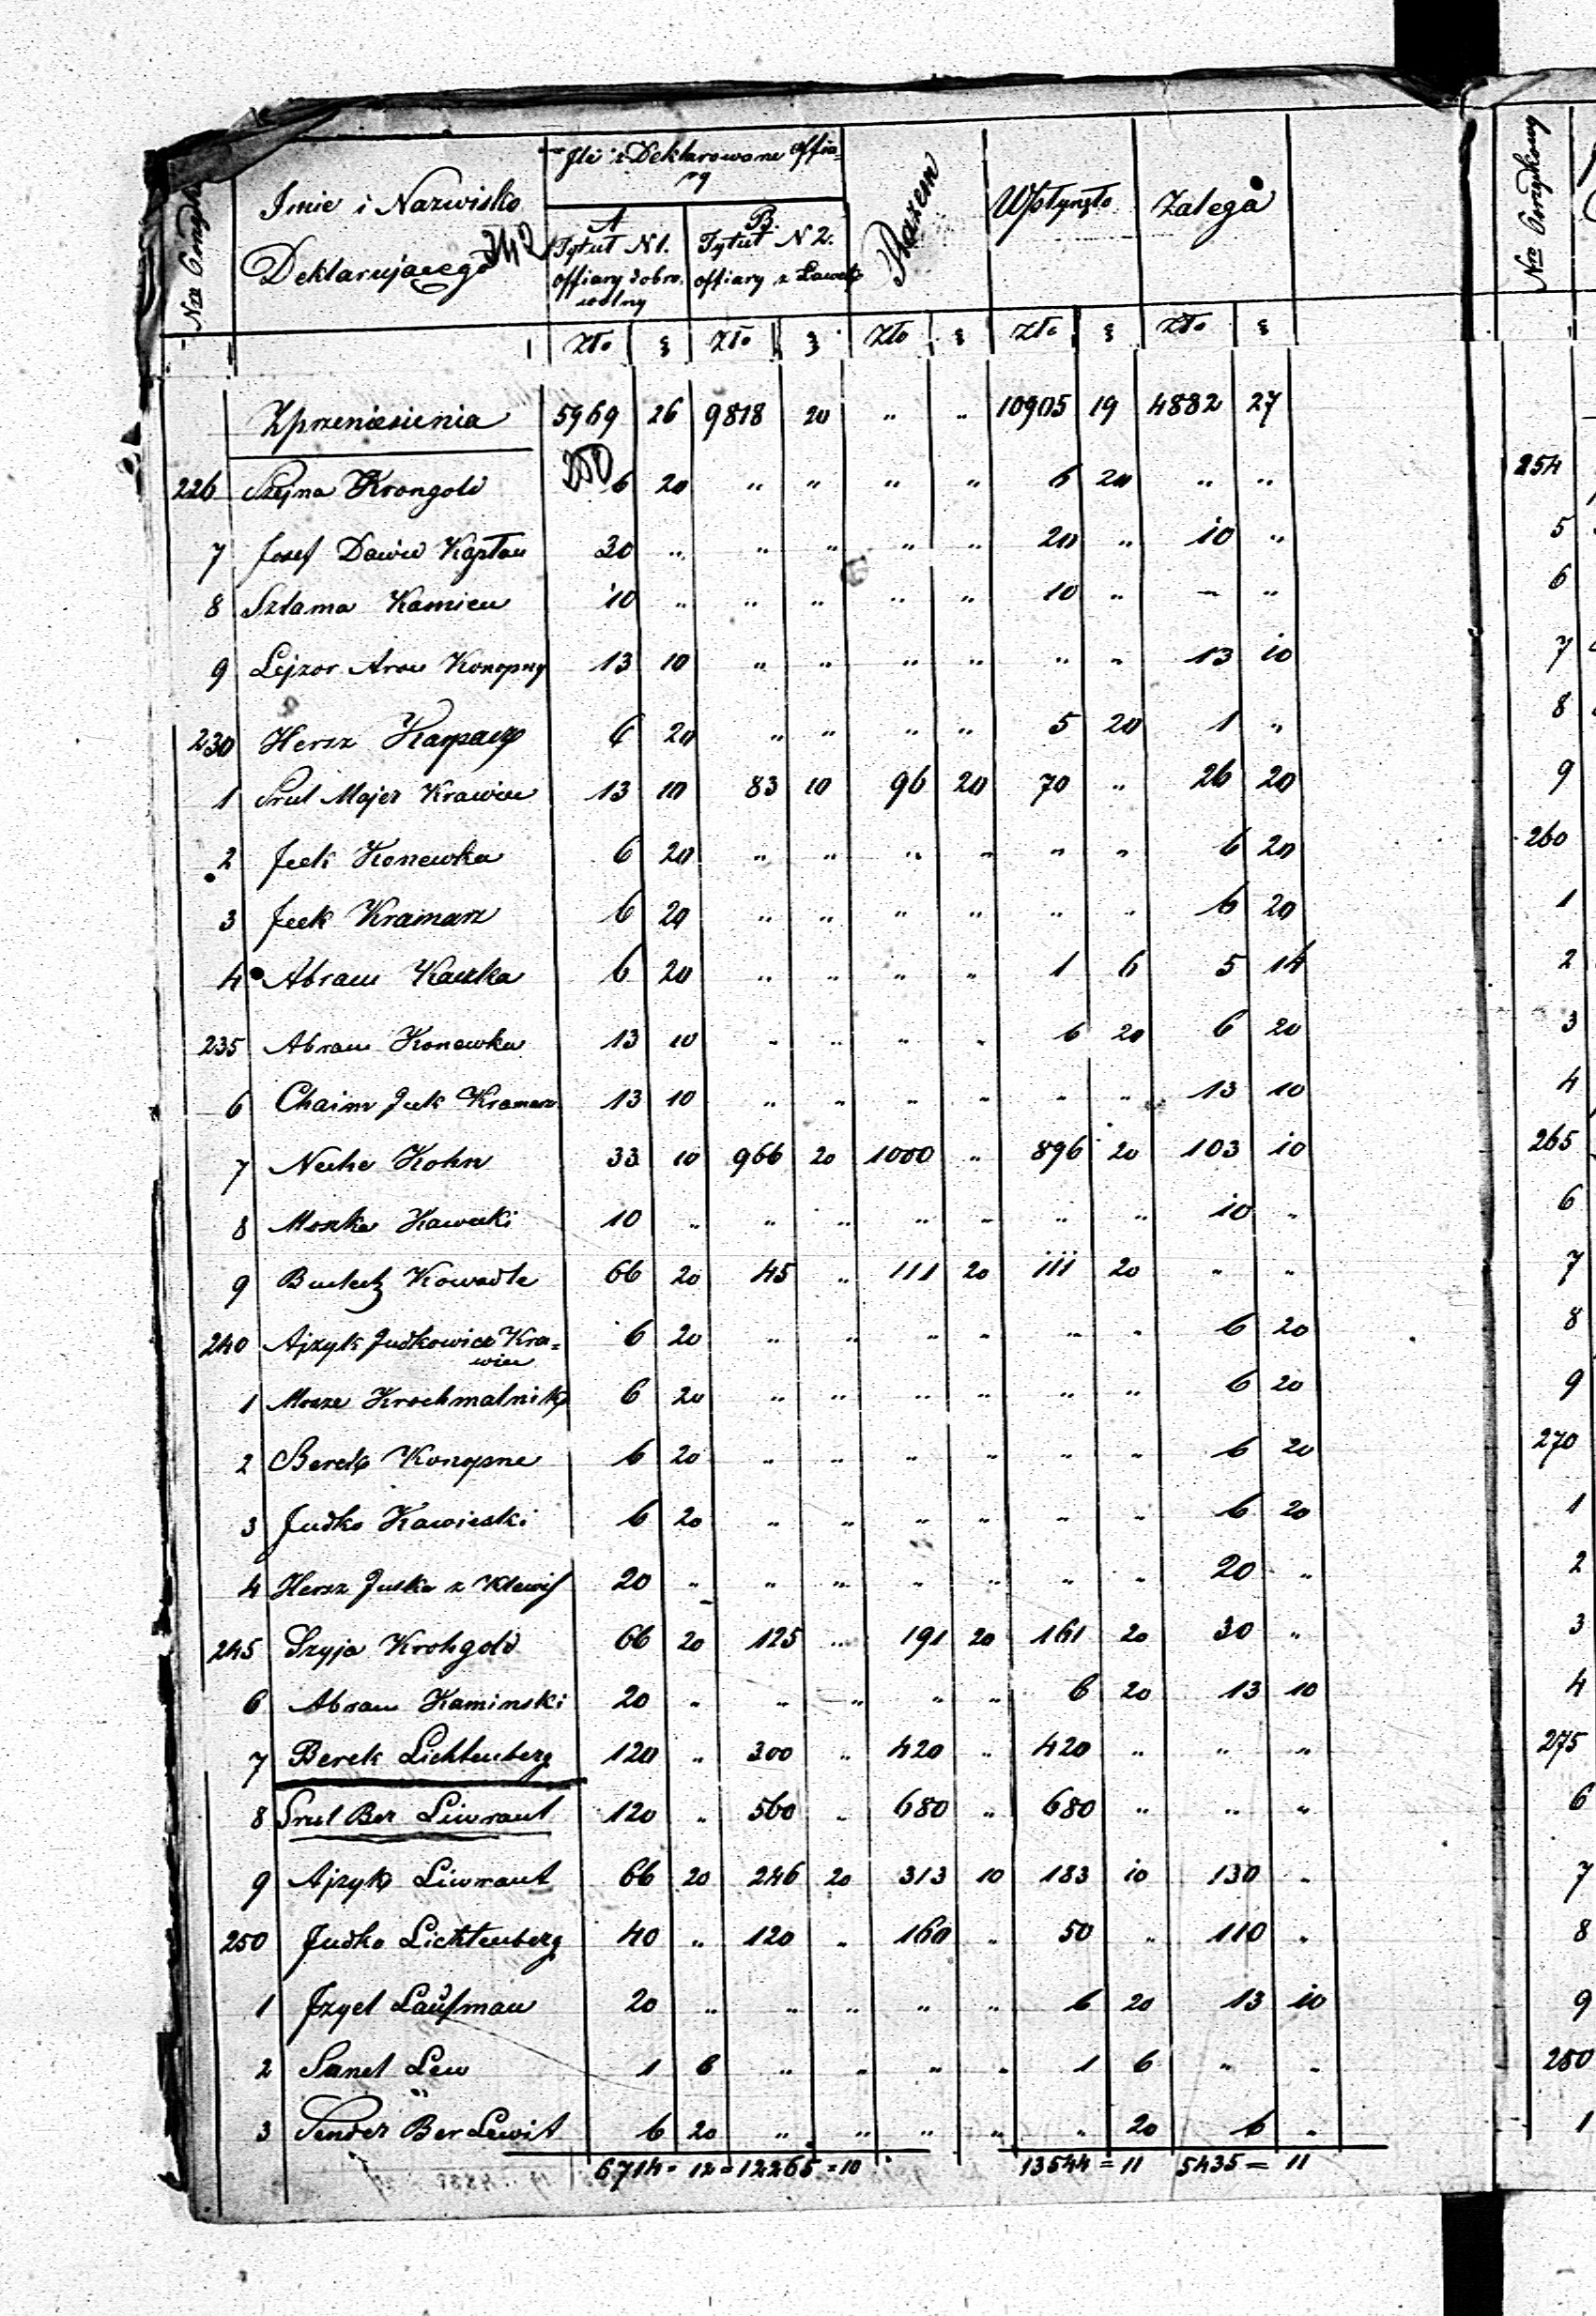 Nro Porządk
Imie i Nazwisko
Deklarującego
Ile zDeklarowane offia=
ry
A
Tytuł N 1.
offiary dobro.
wolny
B.
Tytuł N 2.
offiary z Ławek
Razem
Wpłynęło
Zalega
Nro Porządkowy
Zło Zło Zło Złº Złº
Zprzeniesienia 5969 26 9818 20 " " 10905 19 4882 27
226 Szejna Krongold 6 20 " " " " 6 20 " " 254
7 Josef Dawid Kapłan 30 " " " " " 20 " 10 " 5
8 Szlama Kamien 10 " " " " " 10 " – " 6
9 Lejzor Aron Konopny 13 10 " " " " " " 13 10 7
230 Hersz Karpacz 6 20 " " " " 5 20 1 " 8
1 Srul Majer Krawiec 13 10 83 10 96 20 70 " 26 20 9
2 Icek Konewka 6 20 " " " " " " 6 20 260
3 Icek Kramarz 6 20 " " " " " " 6 20 1
4 Abram Kaczka 6 20 " " " " 1 6 5 14 2
235 Abram Konewka 13 10 " " " " 6 20 6 20 3
6 Chaim Icek Kramarz 13 10 " " " " " " 13 10 4
7 Neche Kohn 33 10 966 20 1000 " 896 20 103 10 265
8 Moszka Kawecki 10 " " " " " " " 10 " 6
9 Kowadle 66 20 45 " 111 20 111 20 " " 7
240 Ajzyk Judkowicz Kra= 6 20 " " " " " " 6 20 8
wiec
1 Mosze Krochmalnik 6 20 " " " " " " 6 20 9
2 Berek Konopne 6 20 " " " " " " 6 20 270
3 Judko Kawiecki 6 20 " " " " " " 6 20 1
4 Hersz Juska z 20 " " " " " " " 20 " 2
245 Szyja Krohgold 66 20 125 " 191 20 161 20 30 " 3
6 Abram Kaminski 20 " " " " " 6 20 13 10 4
7 Berek Lichtenberg 120 " 300 " 420 " 420 " " " 275
8 Srul Ber Liwraut 120 " 560 " 680 " 680 " " " 6
9 Ajzyk Liwraut 66 20 246 20 313 10 183 10 130 " 7
250 Judko Lichtenberg 40 " 120 " 160 " 50 " 110 " 8
1 Izyel Laufman 20 " " " " " 6 20 13 10 9
2 Sanel Lew 1 6 " " " " 1 6 " " 280
3 Sender Ber Lewit 6 20 " " " " " 20 6 " 1
6714 = 12 = 12265 = 10 13544 = 11 5435 = 11